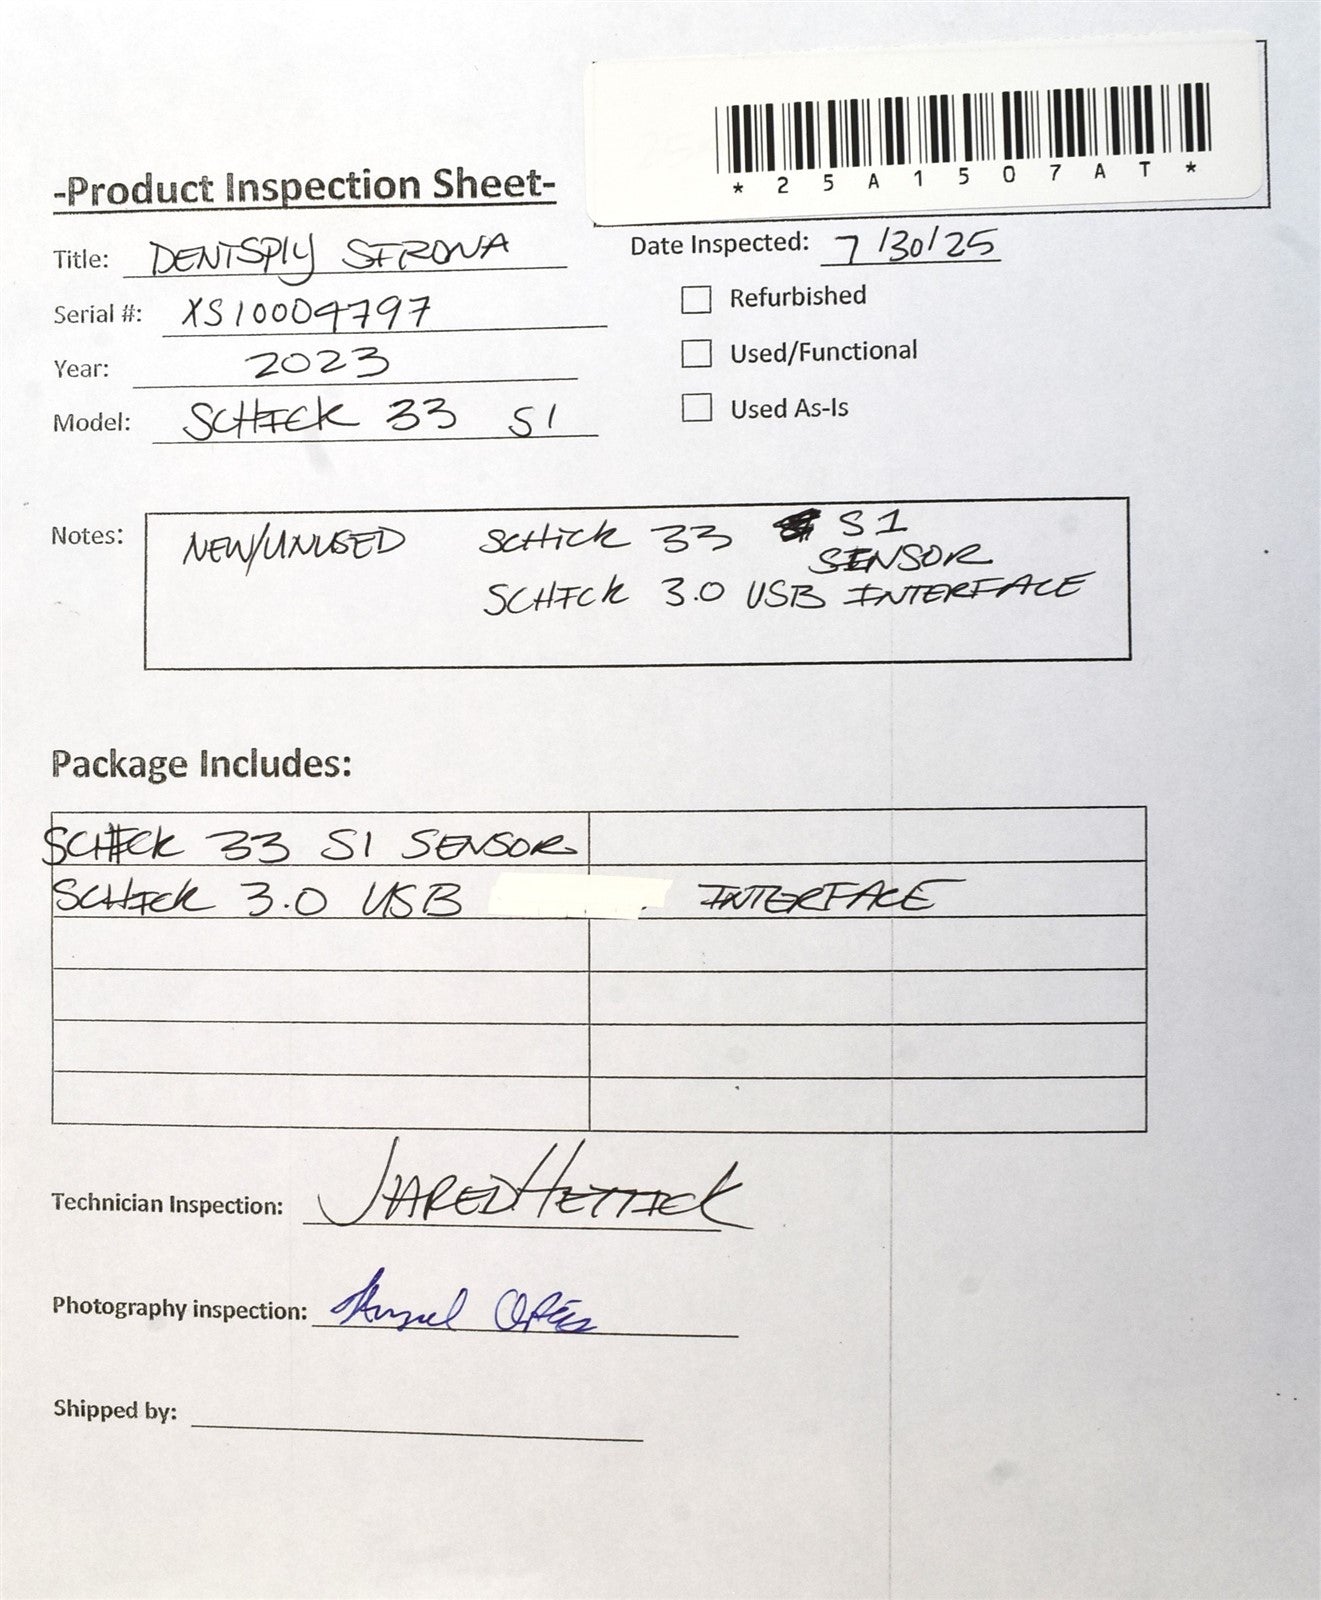 *25A1507AT*
-Product Inspection Sheet-
Title: DENTSPLY SIRONA
Date Inspected: 7/30/25
Serial #: XS10004797
Refurbished
Year: 2023
Used/Functional
Model: SCHICK 33 S1
Used As-Is
Notes: NEW/UNUSED SCHICK 33 S1
SENSOR
SCHICK 3.0 USB INTERFACE
Package Includes:
SCHICK 33 S1 SENSOR
SCHICK 3.0 USB INTERFACE
Technician Inspection: JARED HETTICK
Photography inspection:
Shipped by: